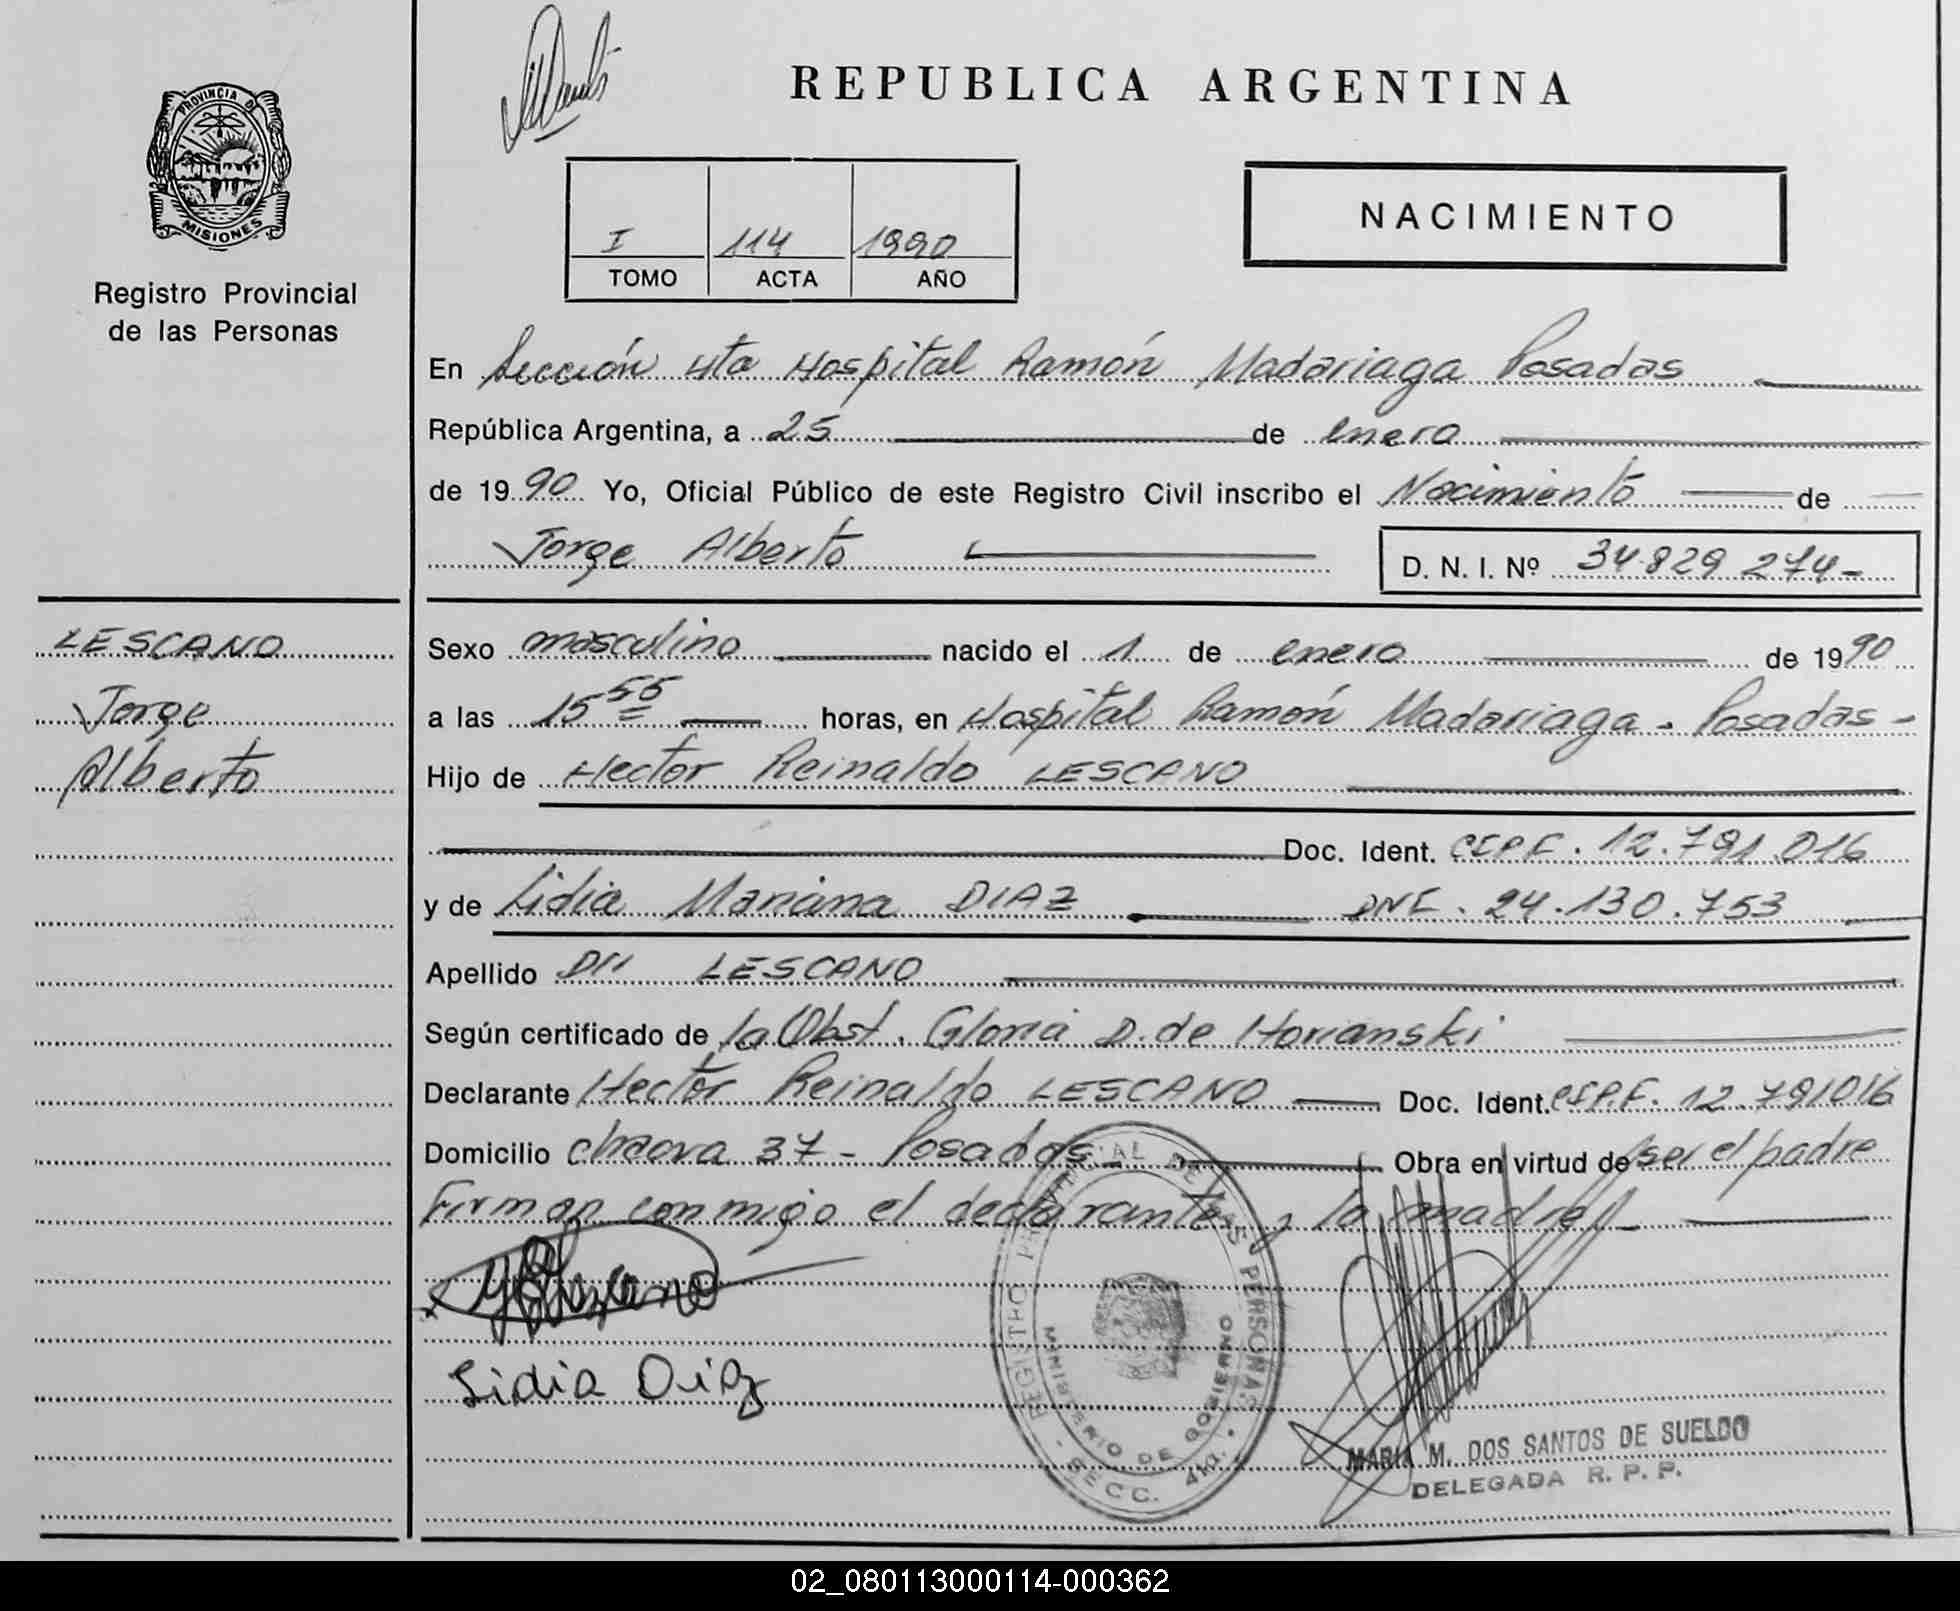 REPUBLICA ARGENTINA
PROVINCIA DE
MISIONES
Registro Provincial
de las Personas
I 114 1990
TOMO ACTA AÑO
NACIMIENTO
En Sección 4ta Hospital Ramón Madariaga Posadas
República Argentina, a 25 de enero
de 1990 Yo, Oficial Público de este Registro Civil inscribo el Nacimiento de
Jorge Alberto D. N. I. Nº 34.829 274-
LESCANO
Jorge
Alberto
Sexo masculino nacido el 1 de enero de 1990
a las 15 55 horas, en Hospital Ramón Madariaga - Posadas -
Hijo de Hector Reinaldo LESCANO
Doc. Ident. CIPF. 12.791.016
y de Lidia Mariana DIAZ DNI. 24.130.753
Apellido LESCANO
Según certificado de la Obst. Gloria D. de Horianski
Declarante Hector Reinaldo LESCANO Doc. Ident. CIPF. 12.791016
Domicilio 37 - Posadas Obra en virtud de ser el padre
Firman conmigo el declarante y la madre
Lidia Diaz
REGISTRO PROVINCIAL DE LAS PERSONAS
MINISTERIO DE GOBIERNO
SECC. 4ta.
MARIA M. DOS SANTOS DE SUELDO
DELEGADA R. P. P.
02_080113000114-000362